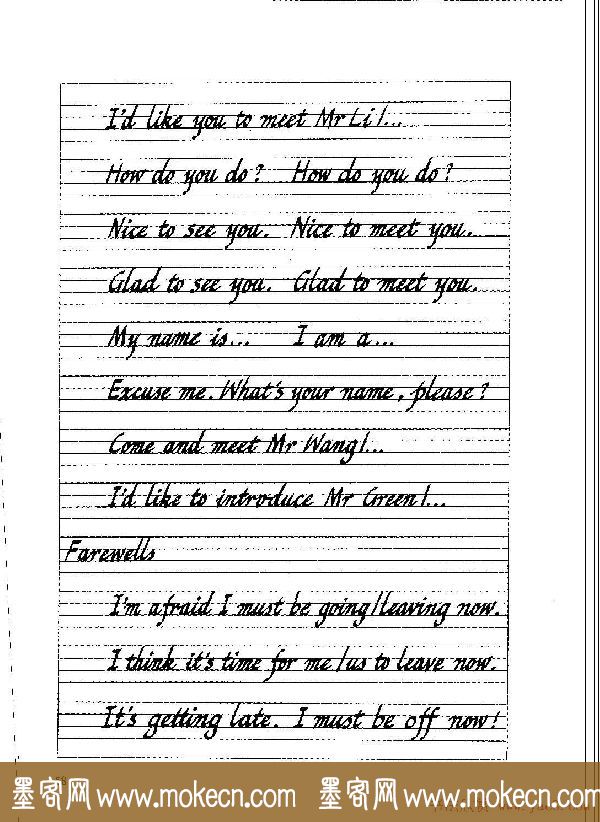 I'd like you to meet Mr Li/...
How do you do? How do you do?
Nice to see you. Nice to meet you.
Glad to see you. Glad to meet you.
My name is... I am a...
Excuse me. What's your name, please?
Come and meet Mr Wang/...
I'd like to introduce Mr Green/...
Farewells
I'm afraid I must be going/leaving now.
I think it's time for me/us to leave now.
It's getting late. I must be off now!
墨客网 www.mokecn.com 墨客网 www.mokecn.com